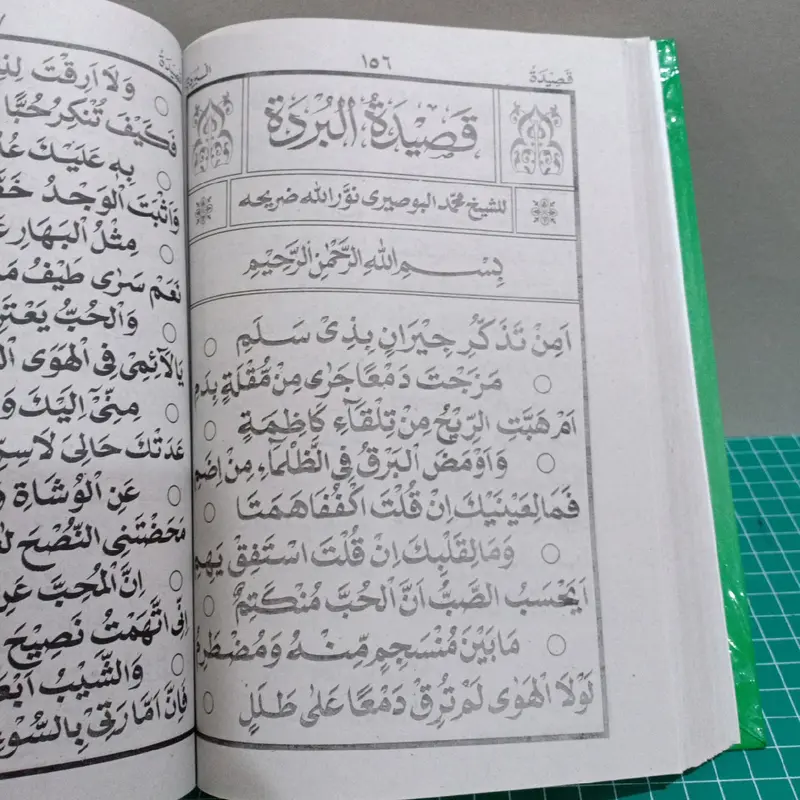 قَصِيْدَةُ
١٥٦
البردة
قَصِيْدَةُ الْبُرْدَةِ
للشيخ محمد البوصيرى نوّر الله ضريحه
بِسْمِ اللهِ الرَّحْمٰنِ الرَّحِيْمِ
اَمِنْ تَذَكُّرِ جِيْرَانٍ بِذِىْ سَلَمِ
مَزَجْتَ دَمْعًا جَرٰى مِنْ مُقْلَةٍ بِدَمِ
اَمْ هَبَّتِ الرِّيْحُ مِنْ تِلْقَآءِ كَاظِمَةٍ
وَاَوْمَضَ الْبَرْقُ فِى الظَّلْمَآءِ مِنْ اِضَمِ
فَمَا لِعَيْنَيْكَ اِنْ قُلْتَ اكْفُفَا هَمَتَا
وَمَا لِقَلْبِكَ اِنْ قُلْتَ اسْتَفِقْ يَهِمِ
اَيَحْسَبُ الصَّبُّ اَنَّ الْحُبَّ مُنْكَتِمٌ
مَا بَيْنَ مُنْسَجِمٍ مِّنْهُ وَمُضْطَرِمِ
لَوْلَا الْهَوٰى لَمْ تُرِقْ دَمْعًا عَلٰى طَلَلٍ
وَلَا اَرِقْتَ
فَكَيْفَ تُنْكِرُ حُبًّا
بِهِ عَلَيْكَ
وَاَثْبَتَ الْوَجْدُ
مِثْلُ الْبَهَارِ
نَعَمْ سَرٰى طَيْفُ
وَالْحُبُّ
يَا لَآئِمِىْ فِى الْهَوَى
مِنِّىْ اِلَيْكَ
عَدَتْكَ حَالِىَ لَا
عَنِ الْوُشَاةِ
مَحَضْتَنِى النُّصْحَ
اِنَّ الْمُحِبَّ عَنِ
اِنِّى اتَّهَمْتُ نَصِيْحَ
وَالشَّيْبُ
فَاِنَّ اَمَّارَتِىْ بِالسُّوْءِ